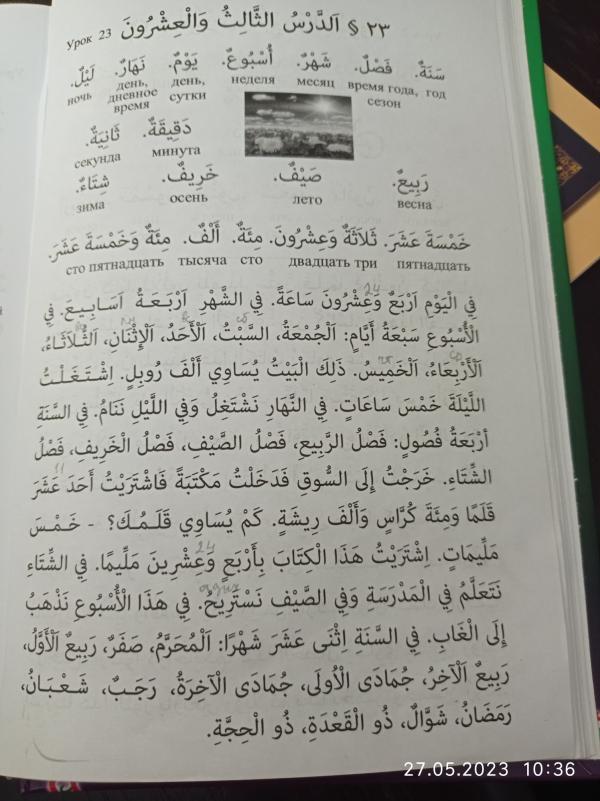 § ٢٣ اَلدَّرْسُ الثَّالِثُ وَالْعِشْرُونَ Урок 23
سَنَةٌ. فَصْلٌ. شَهْرٌ. أُسْبُوعٌ. يَوْمٌ. نَهَارٌ. لَيْلٌ.
ночь день, дневное время день, сутки неделя месяц время года, сезон год
دَقِيقَةٌ. ثَانِيَةٌ.
секунда минута
رَبِيعٌ. صَيْفٌ. خَرِيفٌ. شِتَاءٌ.
зима осень лето весна
خَمْسَةَ عَشَرَ. ثَلَاثَةٌ وَعِشْرُونَ. مِئَةٌ. أَلْفٌ. مِئَةٌ وَخَمْسَةَ عَشَرَ.
сто пятнадцать тысяча сто двадцать три пятнадцать
فِي الْيَوْمِ اَرْبَعٌ وَعِشْرُونَ سَاعَةً. فِي الشَّهْرِ اَرْبَعَةُ اَسَابِيعَ. فِي
الْأُسْبُوعِ سَبْعَةُ أَيَّامٍ: اَلْجُمْعَةُ، السَّبْتُ، اَلْأَحَدُ، اَلْإِثْنَانِ، اَلثَّلَاثَاءُ،
اَلْأَرْبِعَاءُ، اَلْخَمِيسُ. ذَلِكَ الْبَيْتُ يُسَاوِي أَلْفَ رُوبِلٍ. اِشْتَغَلْتُ
اللَّيْلَةَ خَمْسَ سَاعَاتٍ. فِي النَّهَارِ نَشْتَغِلُ وَفِي اللَّيْلِ نَنَامُ. فِي السَّنَةِ
أَرْبَعَةُ فُصُولٍ: فَصْلُ الرَّبِيعِ، فَصْلُ الصَّيْفِ، فَصْلُ الْخَرِيفِ، فَصْلُ
الشِّتَاءِ. خَرَجْتُ إِلَى السُّوقِ فَدَخَلْتُ مَكْتَبَةً فَاشْتَرَيْتُ أَحَدَ عَشَرَ
قَلَمًا وَمِئَةَ كُرَّاسٍ وَأَلْفَ رِيشَةٍ. كَمْ يُسَاوِي قَلَمُكَ؟ - خَمْسَ
مَلِّيمَاتٍ. اِشْتَرَيْتُ هَذَا الْكِتَابَ بِأَرْبَعٍ وَعِشْرِينَ مَلِّيمًا. فِي الشِّتَاءِ
نَتَعَلَّمُ فِي الْمَدْرَسَةِ وَفِي الصَّيْفِ نَسْتَرِيحُ. فِي هَذَا الْأُسْبُوعِ نَذْهَبُ
إِلَى الْغَابِ. فِي السَّنَةِ اِثْنَى عَشَرَ شَهْرًا: اَلْمُحَرَّمُ، صَفَرٌ، رَبِيعٌ اَلْأَوَّلُ،
رَبِيعٌ اَلْآخِرُ، جُمَادَى الْأُولَى، جُمَادَى الْآخِرَةُ، رَجَبٌ، شَعْبَانُ،
رَمَضَانُ، شَوَّالٌ، ذُو الْقَعْدَةِ، ذُو الْحِجَّةِ.
27.05.2023 10:36